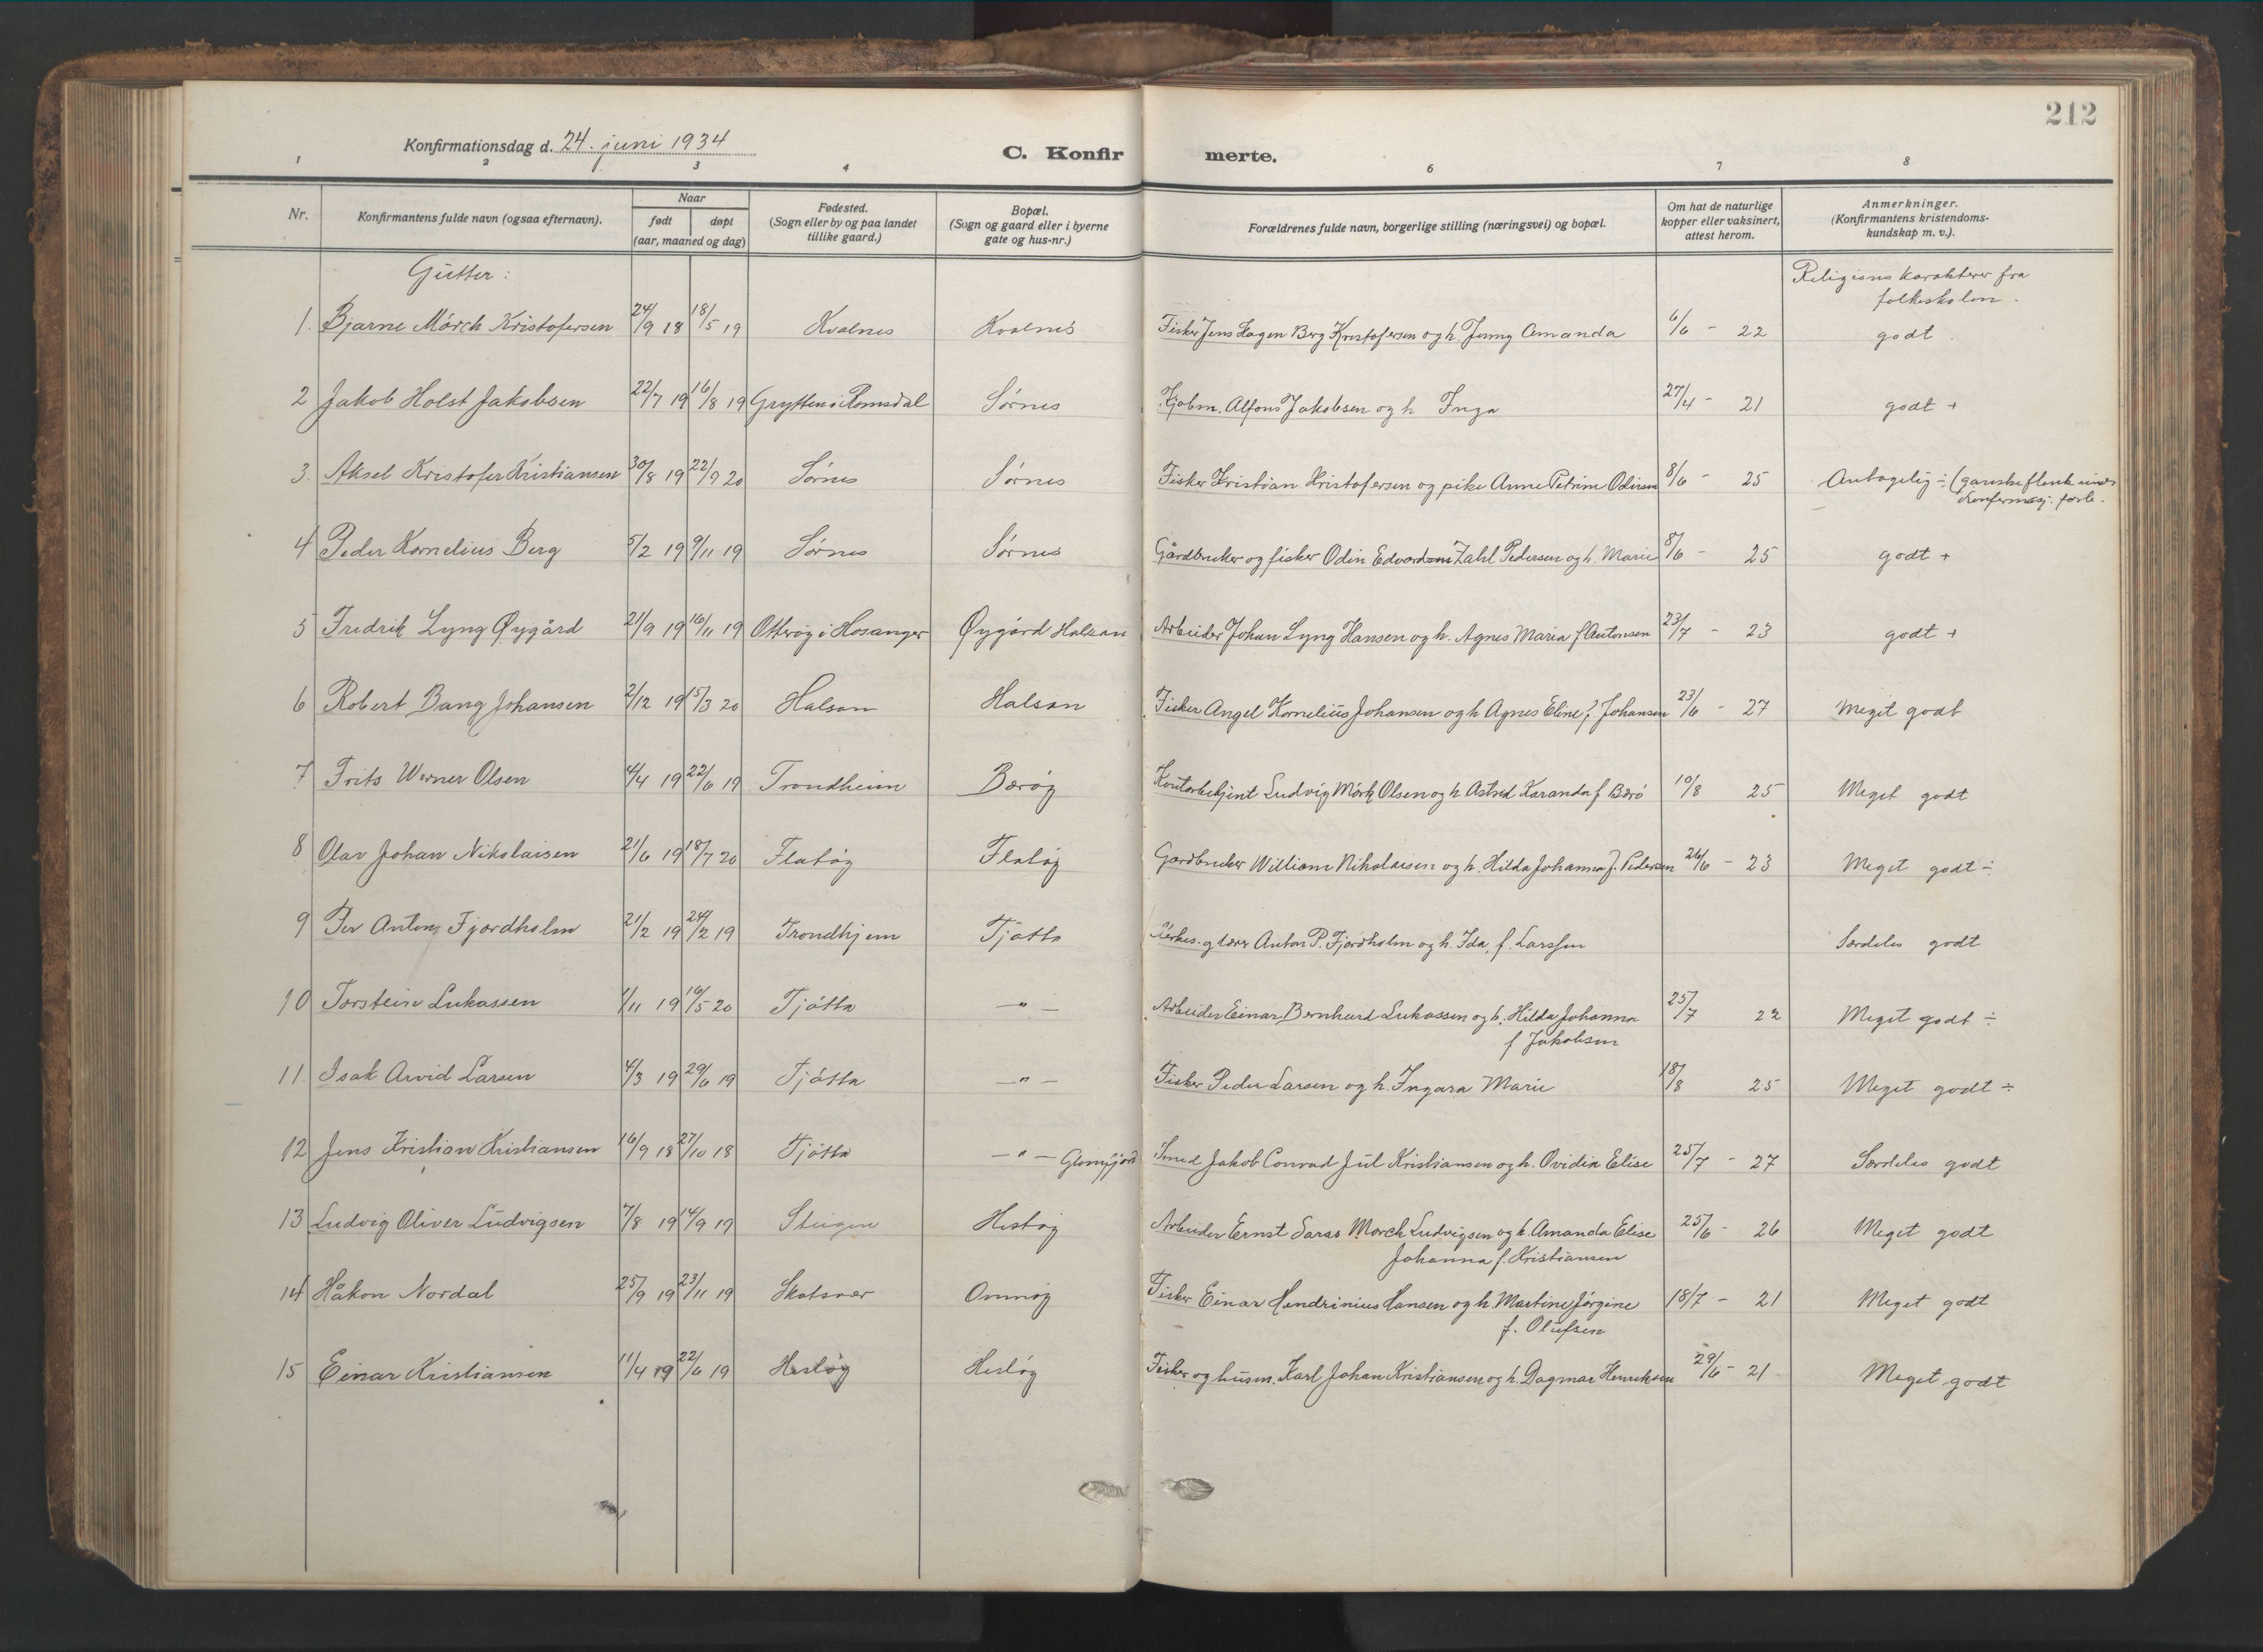 212
Konfirmationsdag d. 24. juni 1934
C. Konfirmerte.
1 2 3 4 6 7 8
Nr. Konfirmantens fulde navn (ogsaa efternavn). Naar født døpt (aar, maaned og dag) Fødested. (Sogn eller by og paa landet tillike gaard.) Bopæl. (Sogn og gaard eller i byerne gate og hus-nr.) Forældrenes fulde navn, borgerlige stilling (næringsvei) og bopæl. Om hat de naturlige kopper eller vaksinert, attest herom. Anmerkninger. (Konfirmantens kristendoms-kundskap m. v.).
Gutter: Religions karakterer fra
folkeskolen.
1. Bjarne Mörch Kristofersen 24/9 18 18/5 19 Kvalnes Kvalnes Fisker Jens Hagen Berg Kristofersen og h. Jenny Amanda 6/6 - 22 godt
2 Jakob Holst Jakobsen 22/7 19 16/8 19 Grytten i Romsdal Sørnes Kjøbm. Alfons Jakobsen og h Inga 27/4 - 21 godt +
3. Aksel Kristofer Kristiansen 30/8 19 22/9 20 Sørnes Sørnes Fisker Kristian Kristofersen og pike Anne Petrine Odinsen 8/6 - 25 Antagelig ÷ (ganske flink under
Konfirmasj. forb.
4 Peder Kornelius Berg 5/2 19 9/11 19 Sørnes Sørnes Gårdbruker og fisker Odin Edvard Zahl Pedersen og h. Marie 8/6 - 25 godt +
5 Fredrik Lyng Øygård 21/9 19 16/11 19 Otterøy i Hosanger Øygård Halsan Arbeider Johan Lyng Hansen og h. Agnes Maria f Antonsen 23/7 - 23 godt +
6 Robert Bang Johansen 2/12 19 15/3 20 Halsan Halsan Fisker Angel Kornelius Johansen og h Agnes Eline f. Johansen 23/6 - 27 Meget godt
7 Frits Werner Olsen 4/4 19 22/6 19 Trondheim Barøy Kontorbetjent Ludvig Mörk Olsen og h Astrid Karanda f Barö 10/8 25 Meget godt
8 Olav Johan Nikolaisen 21/6 19 18/7 20 Flatøy Flatøy Gardbruker William Nikolaisen og h. Hilda Johanna f. Pedersen 26/6 - 23 Meget godt ÷
9 Per Anton Fjordholm 21/2 19 24/2 19 Trondhjem Tjøtta Kirkes. og lærer Anton P. Fjordholm og h. Ida, f. Larssen Særdeles godt
10 Torstein Lukassen 1/11 19 16/5 20 Tjøtta — " — Arbeider Einar Bernhard Lukassen og h. Hilda Johanna 25/7 22 Meget godt ÷
f Jakobsen
11. Isak Arvid Larsen 4/3 19 29/6 19 Tjøtta — " — Fisker Peder Larsen og h. Ingara Marie 18/8 25 Meget godt ÷
12 Jens Kristian Kristiansen 16/9 18 27/10 18 Tjøtta — " — Glomfjord Smed Jakob Conrad Jul Kristiansen og h. Ovidia Elise 25/7 - 27 Særdeles godt
13 Ludvig Oliver Ludvigsen 7/8 19 14/9 19 Steigen Hestøy Arbeider Ernst Saras Mørch Ludvigsen og h. Amanda Elise 25/6 - 26 Meget godt
Johanna f. Kristiansen
14 Håkon Nordal 25/9 19 23/11 19 Skotsvær Omnøy Fisker Einar Hendrinius Hansen og h. Martine Jørgine 18/7 - 21 Meget godt
f. Olufsen
15 Einar Kristiansen 11/4 19 22/6 19 Hestøy Hestøy Fisker og husm. Karl Johan Kristiansen og h. Dagmar Henriksen 29/6 - 21 Meget godt